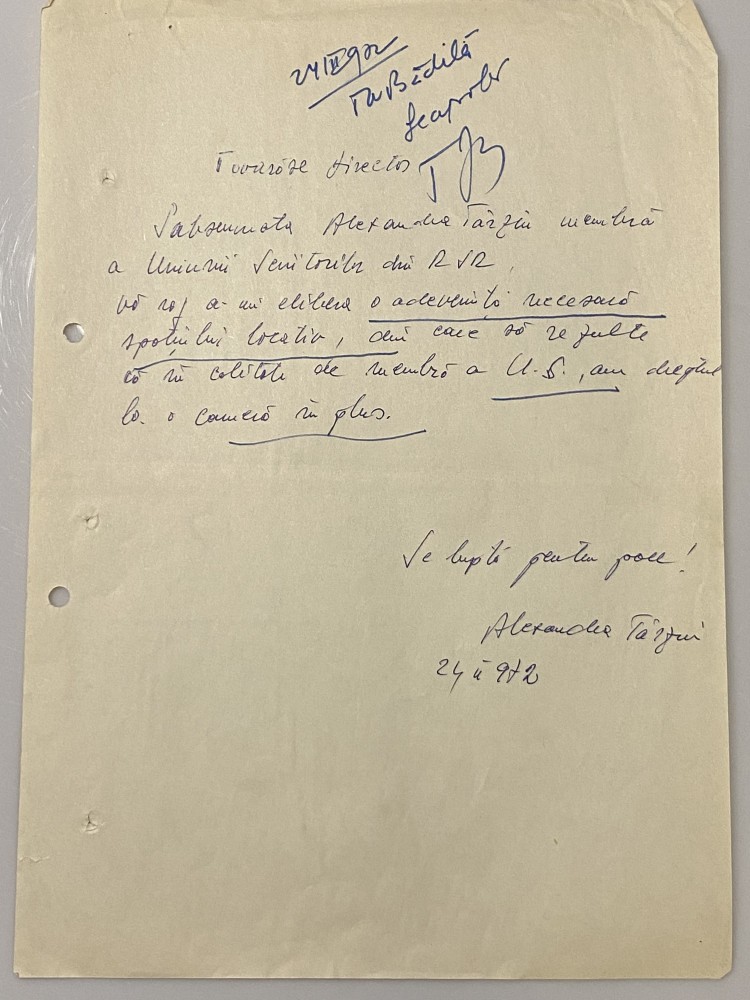 24 III 972
Tov Bădilă
se aprobă
Tovarășe director
Subsemnata Alexandra Târziu membră
a Uniunii Scriitorilor din RSR,
vă rog a-mi elibera o adeverință necesară
spațiului locativ, din care să rezulte
că în calitate de membră a U.S., am dreptul
la o cameră în plus.
Se luptă pentru pace!
Alexandra Târziu
24 II 972